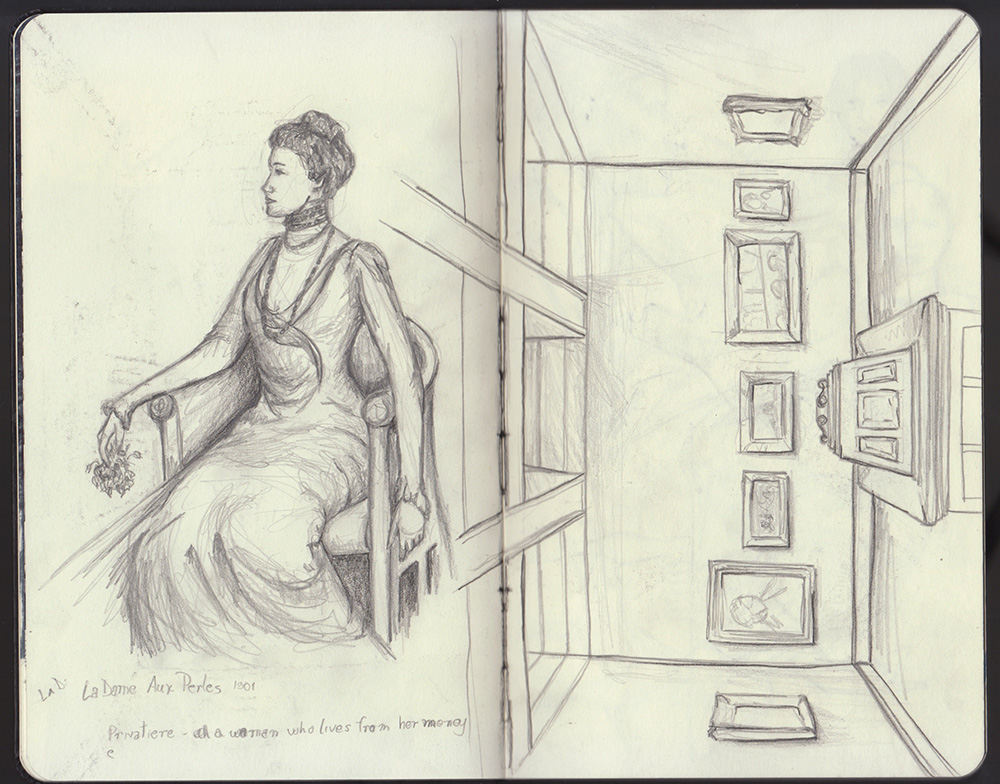 La D. La Dame Aux Perles 1901
Privatiere - a woman who lives from her money
e